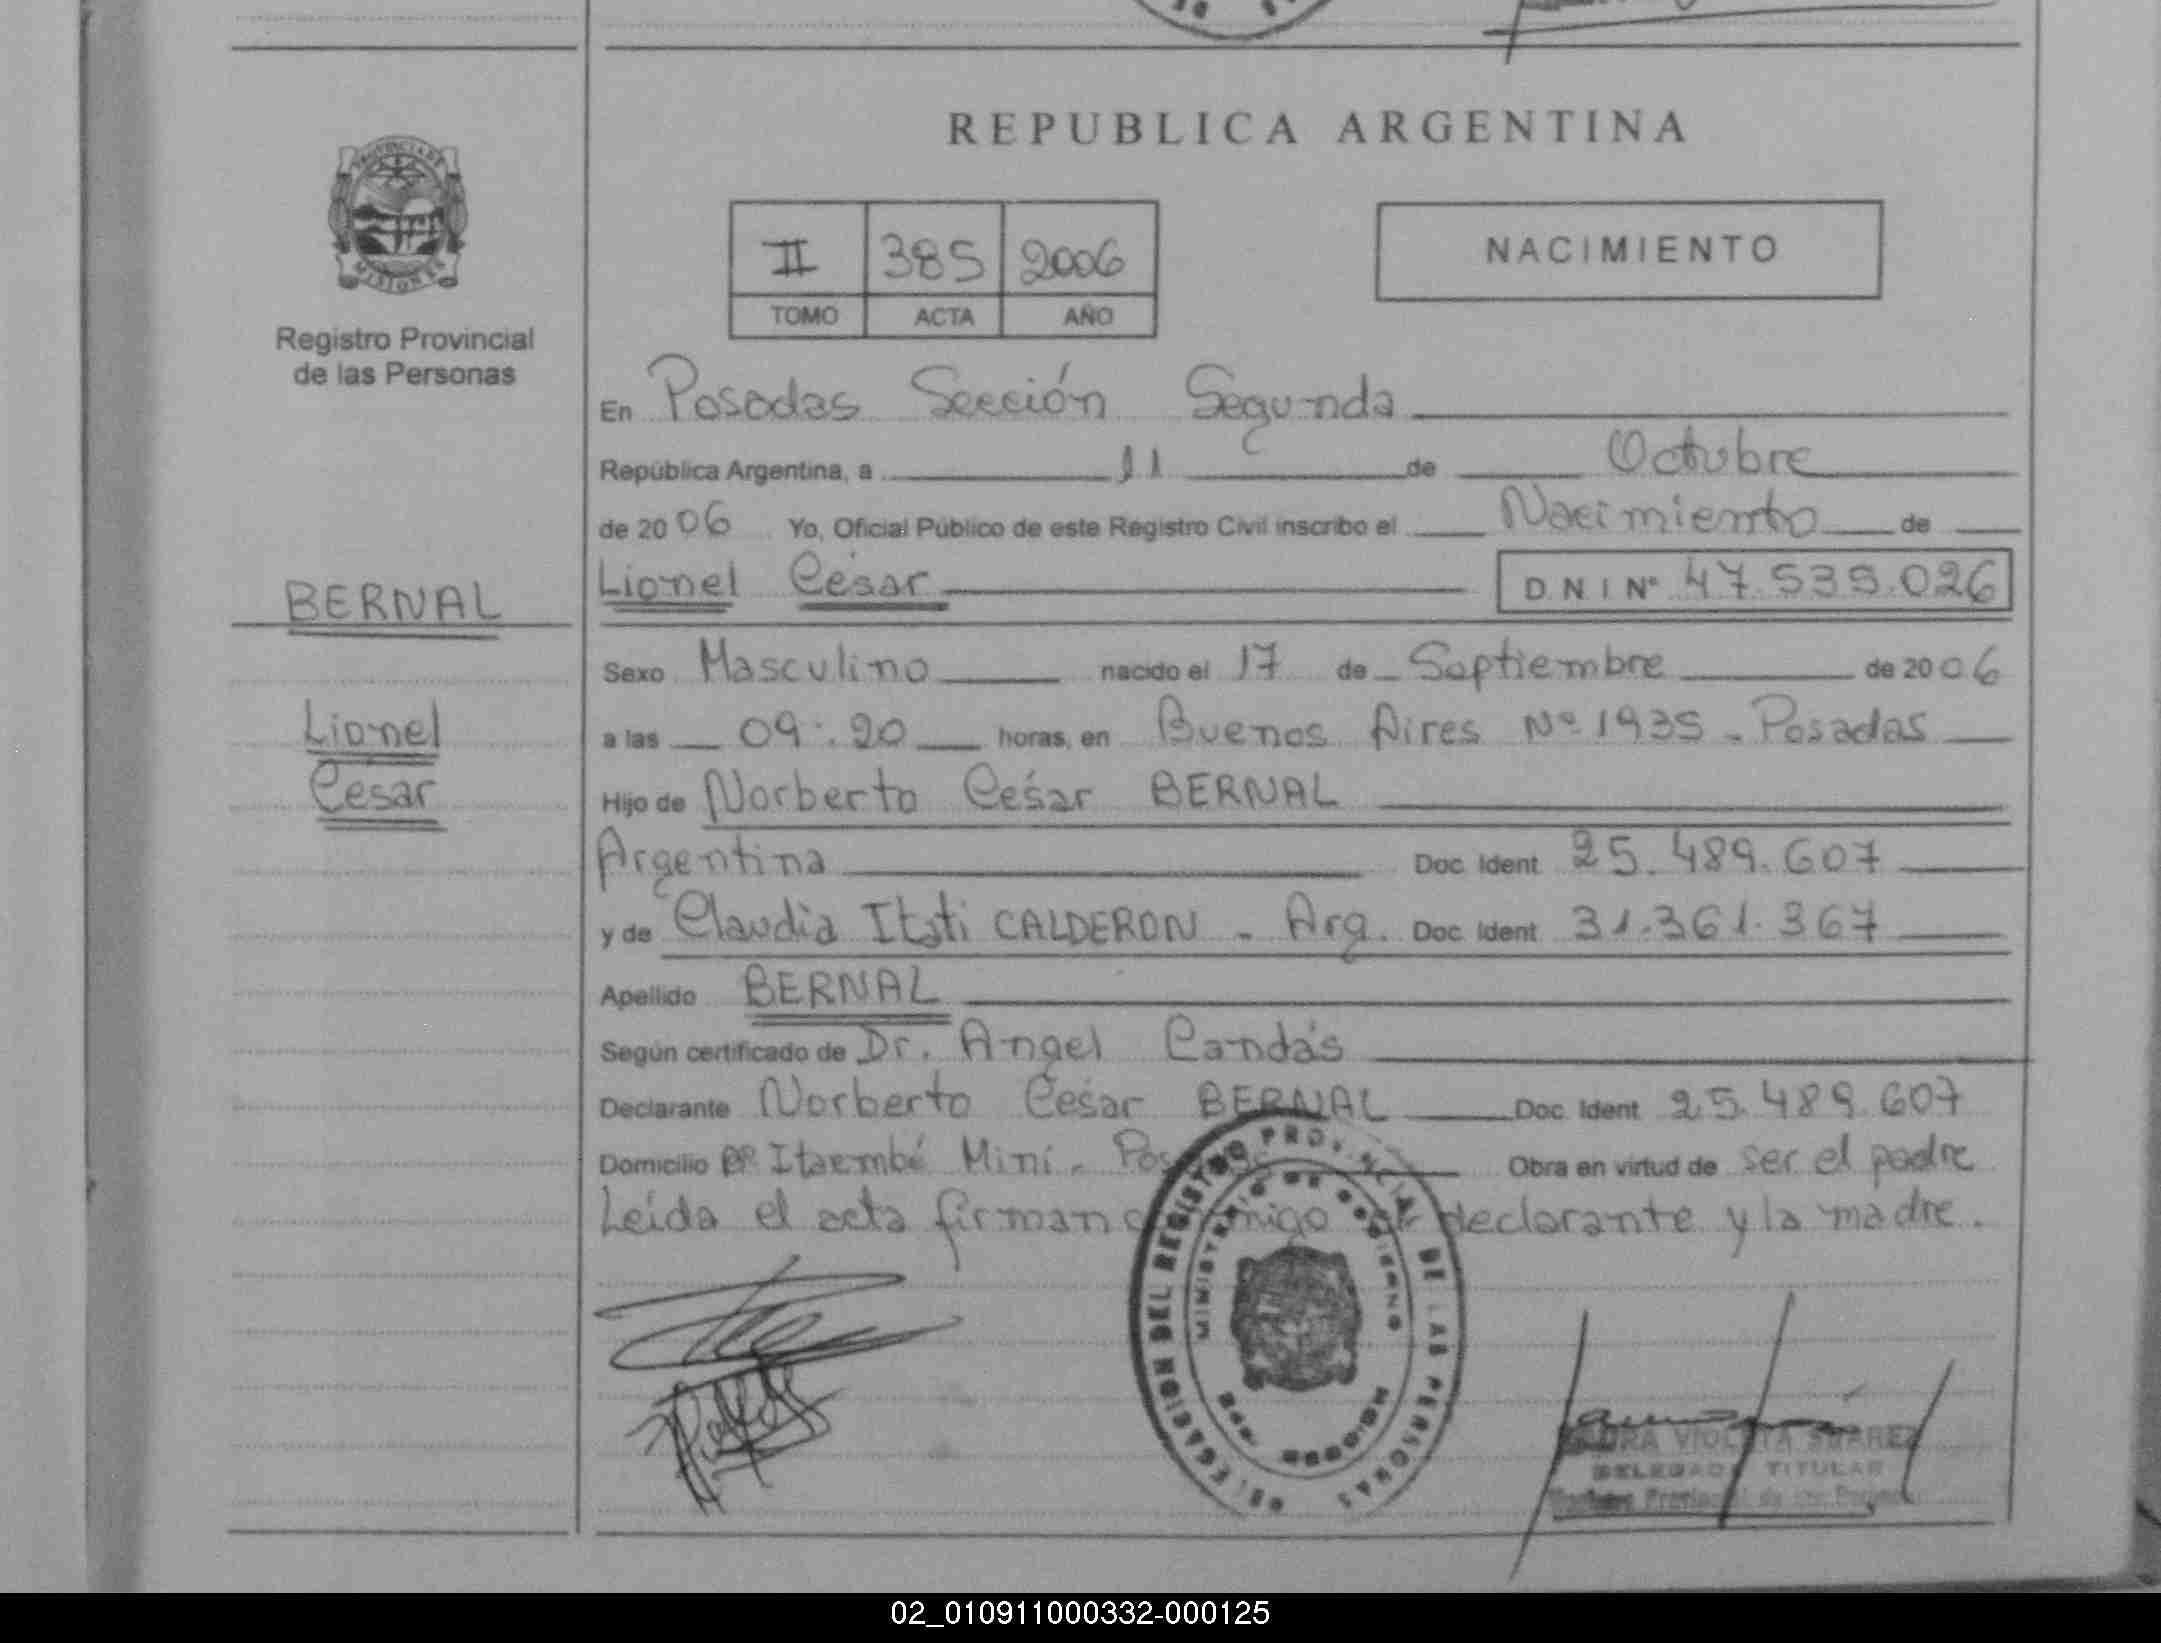 REPUBLICA ARGENTINA
II 385 2006
TOMO ACTA AÑO
NACIMIENTO
PROVINCIA DE
MISIONES
Registro Provincial
de las Personas
BERNAL
Lionel
Cesar
En Posadas Sección Segunda
República Argentina, a 11 de Octubre
de 2006 Yo, Oficial Público de este Registro Civil inscribo el Nacimiento de
Lionel César D.N.I Nº 47.535.026
Sexo Masculino nacido el 17 de Septiembre de 2006
a las 09:20 horas, en Buenos Aires Nº 1935 - Posadas
Hijo de Norberto César BERNAL
Argentina Doc. Ident 25.489.607
y de Claudia Itati CALDERON - Arg. Doc. Ident 31.361.367
Apellido BERNAL
Según certificado de Dr. Angel Candás
Declarante Norberto César BERNAL Doc. Ident 25.489.607
Domicilio Bº Itaembé Miní - Obra en virtud de ser el padre
Leída el acta firman conmigo el declarante y la madre.
DELEGACION DEL REGISTRO PROVINCIAL DE LAS PERSONAS
MINISTERIO DE GOBIERNO
MISIONES
VIOLETA SUAREZ
DELEGADA TITULAR
02_010911000332-000125